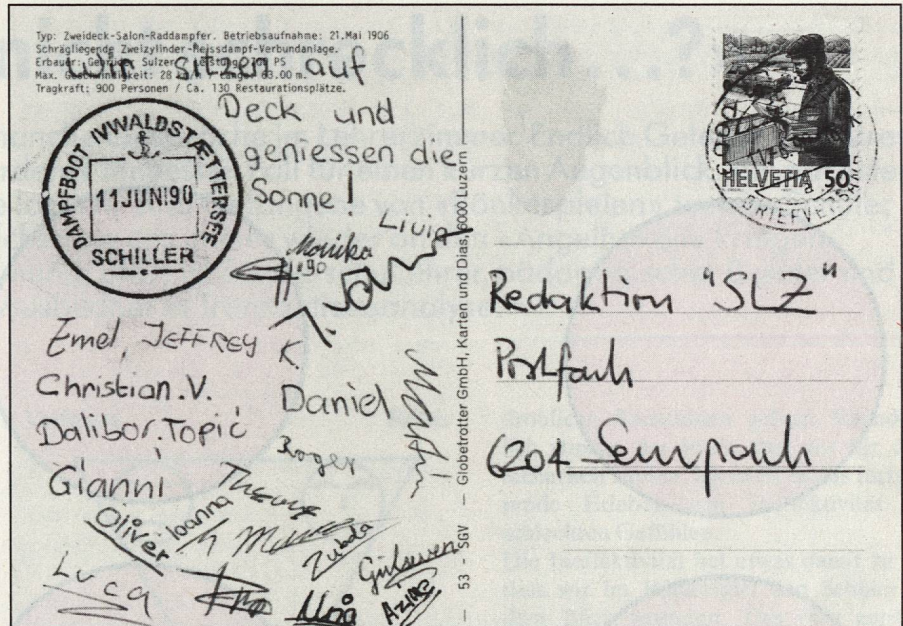 Typ: Zweideck-Salon-Raddampfer. Betriebsaufnahme: 21.Mai 1906
Schrägliegende Zweizylinder-Heissdampf-Verbundanlage.
Erbauer: Gebrüder Sulzer / Leistung: 700 PS
Max. Geschwindigkeit: 28 km/h / Länge: 63.00 m.
Tragkraft: 900 Personen / Ca. 130 Restaurationsplätze.
Wir sitzen auf
Deck und
geniessen die
Sonne!
DAMPFBOOT IVWALDSTÆTTERSEE
11 JUNI 90
SCHILLER
HELVETIA 50
BRIEFVERSAND
Livia
Monika
Hugo
Emel, JEFFREY K.
Christian.V.
Daniel
Martin
Dalibor.Topić
Roger
Gianni
Thomas
Oliver
Ioanna
Zubeda
Gülseren
Luca
Azize
53 – SGV – Globetrotter GmbH, Karten und Dias, 6000 Luzern
Redaktion "SLZ"
Postfach
6204 Sempach